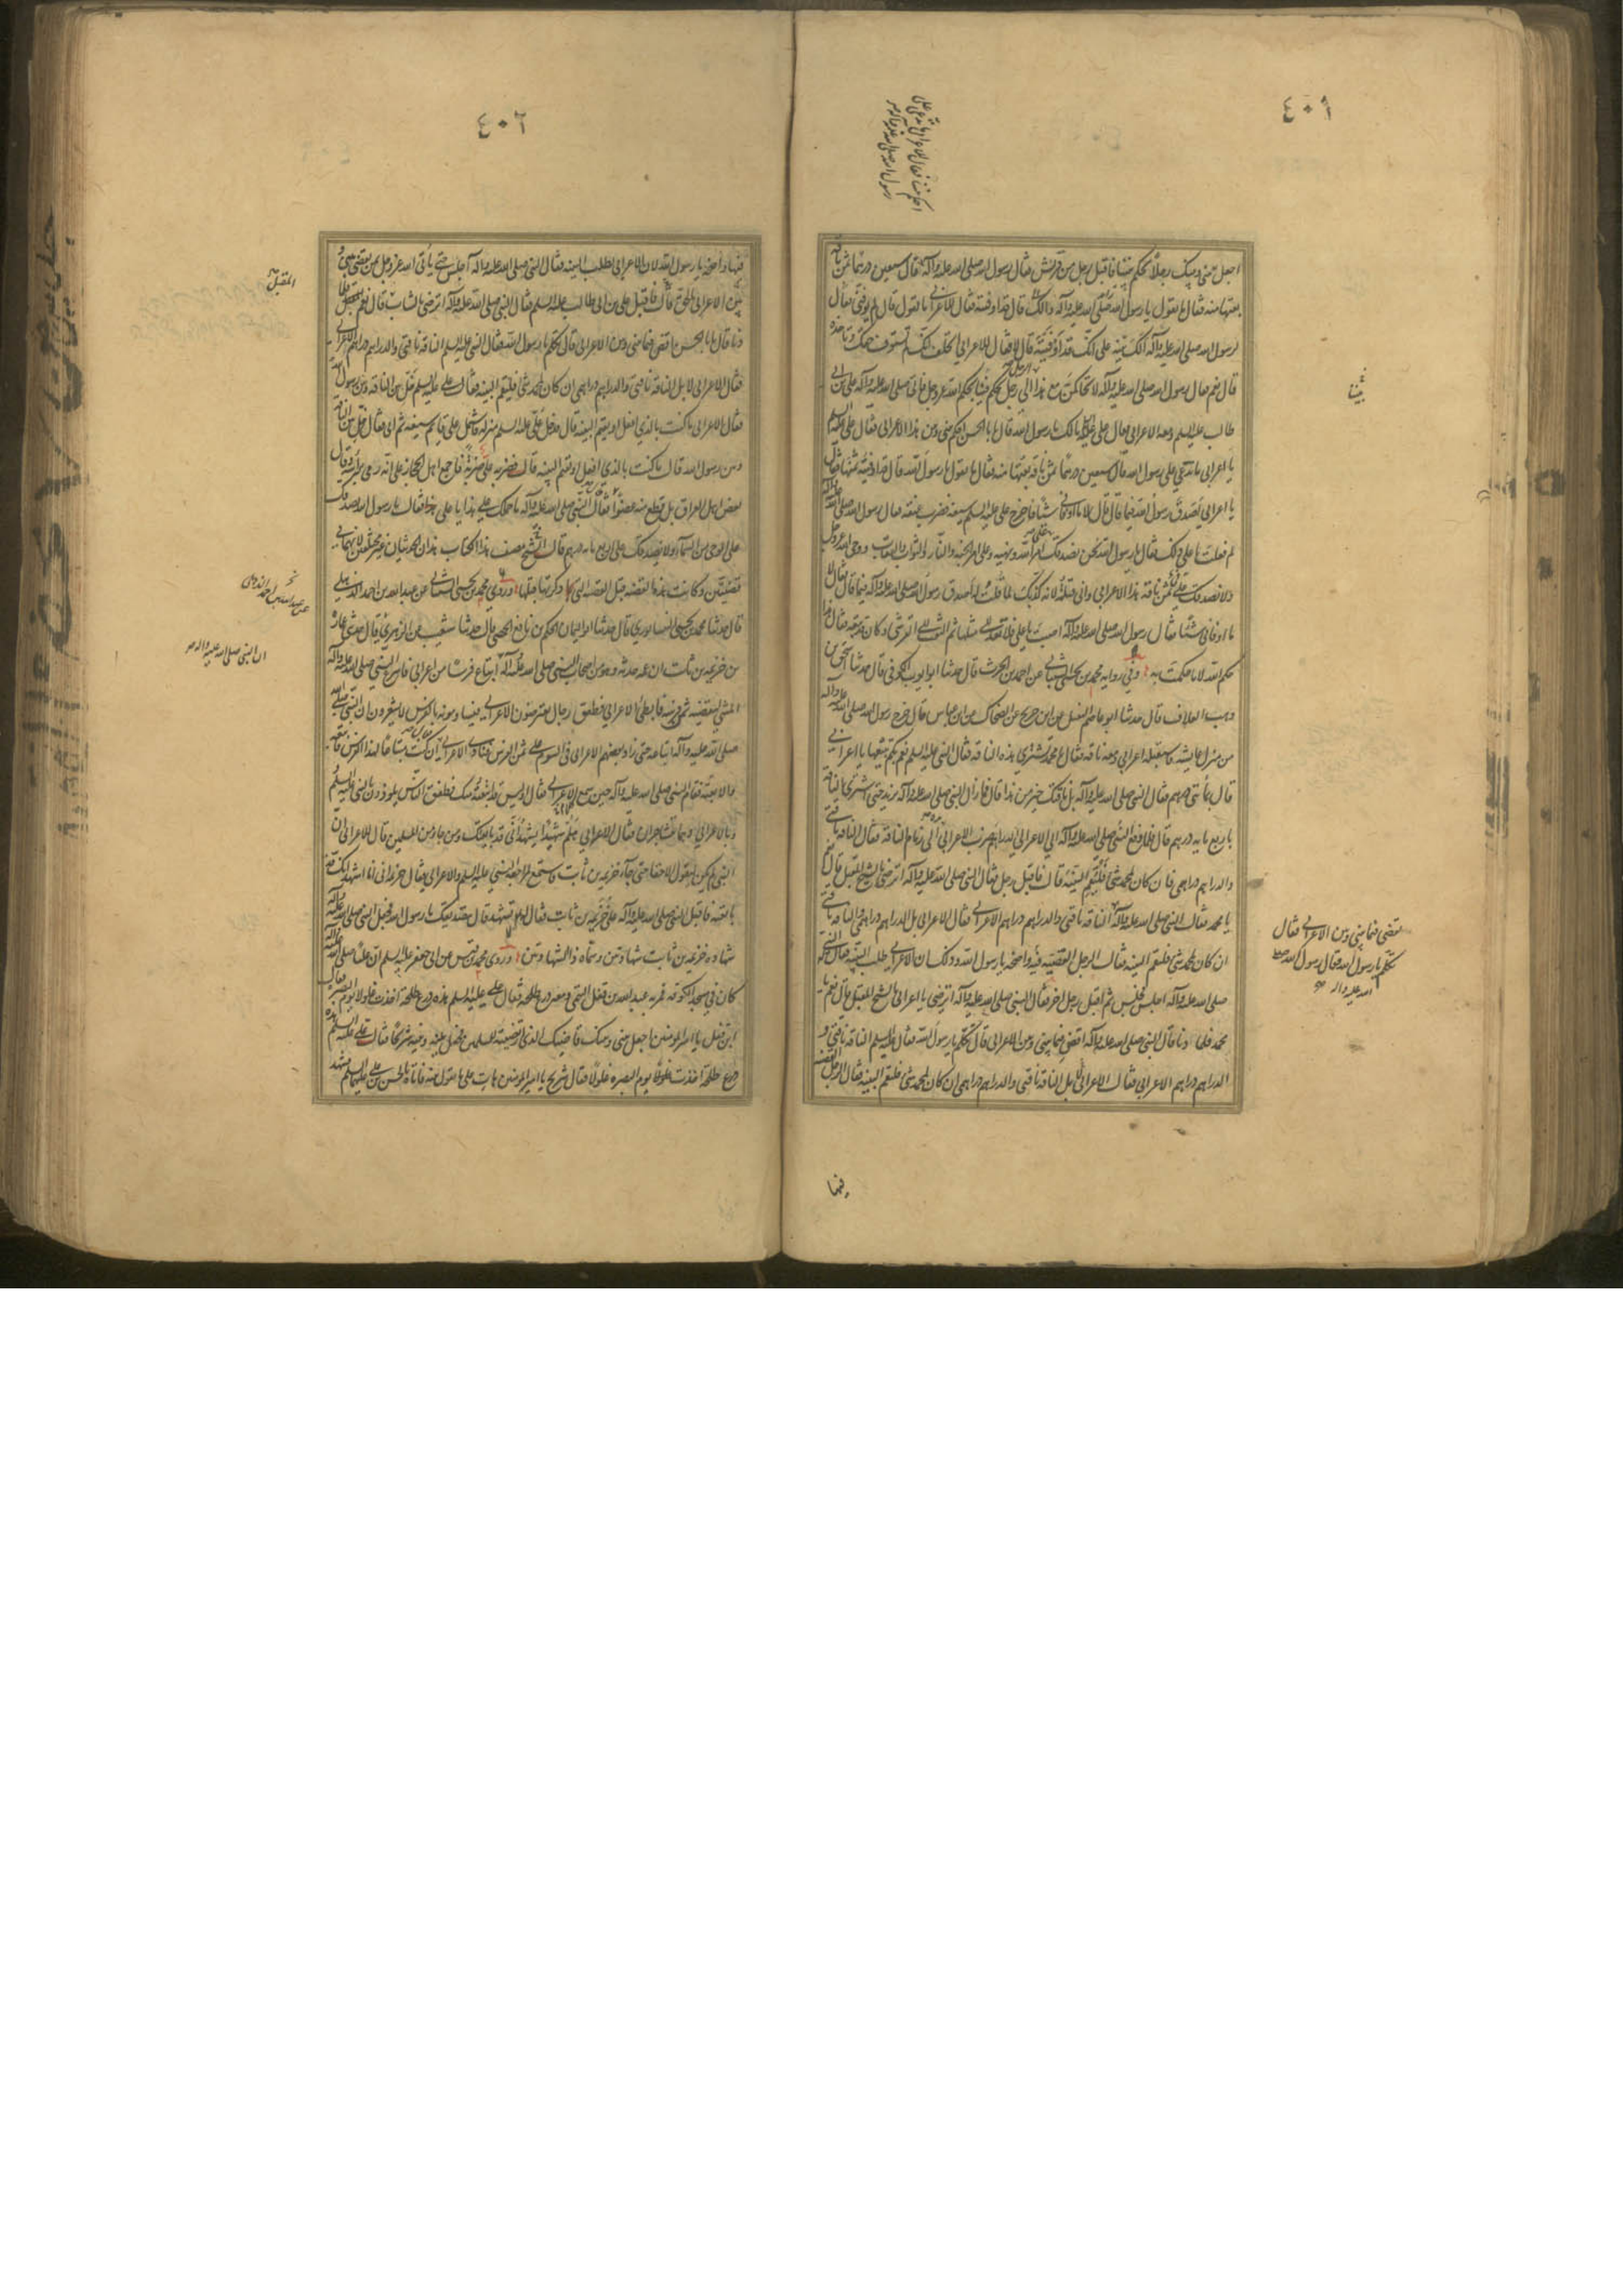 ٤٠١
اجعل بيني وبينك رجلاً يحكم بيننا فاقبل رجل من قريش فقال رسول الله صلى الله عليه وآله فقال سبعين درهما ثمن ناقة
بعتها منه فقال ما تقول يا رسول الله صلى الله عليه وآله ذلك قال قد اوفيته فقال للاعرابي ما تقول قال لم يوفني فقال
لرسول الله صلى الله عليه وآله الك بينة على انك قد اوفيته قال لا فقال للاعرابي اتحلف انك لم تستوف حقك وتاخذه
قال نعم فقال رسول الله صلى الله عليه وآله لاتحاكمن مع هذا الى رجل يحكم بيننا بحكم الله عز وجل فاتى صلى الله عليه وآله على بن ابي
طالب عليه السلم ومعه الاعرابي فقال علي مالك يا رسول الله قال يا ابا الحسن احكم بيني وبين هذا الاعرابي فقال علي عليه السلم
يا اعرابي ما تدعي على رسول الله قال سبعين درهما ثمن ناقة بعتها منه فقال ما تقول يا رسول الله قال قد اوفيته ثمنها فقال
يا اعرابي اصدق رسول الله فيما قال قال لا ما اوفاني شيئا فاخرج علي عليه السلم سيفه فضرب عنقه فقال رسول الله صلى الله عليه وآله
لم فعلت يا علي ذلك فقال يا رسول الله نحن نصدقك على امر الله ونهيه وعلى امر الجنة والنار والثواب والعقاب ووحي الله عز وجل
ولا نصدقك على ثمن ناقة هذا الاعرابي واني قتلته لانه كذبك لما قلت له اصدق رسول الله صلى الله عليه وآله فيما قال فقال لا
ما اوفاني شيئا فقال رسول الله صلى الله عليه وآله اصبت يا علي فلا تعد الى مثلها ثم التفت الى القرشي وكان قد تبعه فقال هذا
حكم الله لا ما حكمت به وفي رواية محمد بن بحر الشيباني عن احمد بن الحرث قال حدثنا ابو ايوب الكوفي قال حدثنا اسحق بن
وهب العلاف قال حدثنا ابو عاصم النبيل عن ابن جريج عن الضحاك عن ابن عباس قال خرج رسول الله صلى الله عليه وآله
من منزل عايشة فاستقبله اعرابي ومعه ناقة فقال يا محمد تشتري هذه الناقة فقال النبي عليه السلم نعم بكم تبيعها يا اعرابي
قال بمائتي درهم فقال النبي صلى الله عليه وآله بل ناقتك خير من هذا قال فما زال النبي صلى الله عليه وآله يزيد حتى اشترى الناقة
باربع مايه درهم قال فلما دفع النبي صلى الله عليه وآله الى الاعرابي الدراهم ضرب الاعرابي يده الى زمام الناقة فقال الناقة ناقتي
والدراهم دراهمي فان كان لمحمد شئ فليقم البينة قال فاقبل رجل فقال النبي صلى الله عليه وآله اترضى بالشيخ المقبل قال نعم
يا محمد فقال النبي صلى الله عليه وآله الناقة ناقتي والدراهم دراهم الاعرابي فقال الاعرابي بل الدراهم دراهمي والناقة ناقتي
ان كان لمحمد شئ فليقم البينة فقال الرجل القضية فيها واضحة يا رسول الله وذلك ان الاعرابي طلب البينة فقال النبي
صلى الله عليه وآله اجلس فجلس ثم اقبل رجل اخر فقال النبي صلى الله عليه وآله اترضى يا اعرابي بالشيخ المقبل قال نعم يا
محمد فلما دنا قال النبي صلى الله عليه وآله اقض فيما بيني وبين الاعرابي قال تكلم يا رسول الله فقال عليه السلم الناقة ناقتي و
الدراهم دراهم الاعرابي فقال الاعرابي لا بل الناقة ناقتي والدراهم دراهمي ان كان لمحمد شئ فليقم البينة فقال الرجل القضية
شيئا
تقضي فيما بيني وبين الاعرابي فقال
تكلم يا رسول الله فقال رسول الله صلى
الله عليه واله
فيها
٤٠٢
فيها واضحة يا رسول الله لان الاعرابي طلب البينة فقال النبي صلى الله عليه وآله اجلس حتى يأتي الله عز وجل بمن يقضي بيني و
بين الاعرابي بالحق فاقبل علي بن ابي طالب عليه السلم فقال النبي صلى الله عليه وآله اترضى بالشاب المقبل قال نعم فلما
دنا قال يا ابا الحسن اقض فيما بيني وبين الاعرابي قال تكلم يا رسول الله فقال النبي عليه السلم الناقة ناقتي والدراهم دراهم الاعرابي
فقال الاعرابي لا بل الناقة ناقتي والدراهم دراهمي ان كان لمحمد شئ فليقم البينة فقال علي عليه السلم خل بين الناقة وبين رسول الله
فقال الاعرابي ما كنت بالذي افعل او يقيم البينة قال فدخل علي عليه السلم منزله فاشتمل على قائم سيفه ثم اتى فقال خل بين الناقة
وبين رسول الله قال ما كنت بالذي افعل او يقيم البينة قال فضربه علي ضربة فاجمع اهل الحجاز على انه رمى براسه وقال
بعض اهل العراق بل قطع منه عضوا فقال النبي صلى الله عليه وآله ما حملك على هذا يا علي فقال يا رسول الله نصدقك
على الوحي من السماء ولا نصدقك على اربع مايه درهم قال الشيخ مصنف هذا الكتاب هذان الحديثان غير مختلفين لانهما في
قضيتين وكانت هذه القضية قبل القضية التي ذكرتها قبلها وروى محمد بن بحر الشيباني عن عبد الله بن احمد الذهلي
قال حدثنا محمد بن يحيى النيسابوري قال حدثنا ابو اليمان الحكم بن نافع الحمصي قال حدثنا شعيب عن الزهري قال حدثني عمارة
بن خزيمة بن ثابت ان عمه حدثه وهو من اصحاب النبي صلى الله عليه وآله ابتاع فرسا من اعرابي فاسرع النبي صلى الله عليه وآله
المشي ليقضيه ثمن فرسه فابطأ الاعرابي فطفق رجال يعترضون الاعرابي فيساومونه بالفرس لا يشعرون ان النبي
صلى الله عليه وآله ابتاعه حتى زاد بعضهم الاعرابي في السوم على ثمن الفرس فنادى الاعرابي ان كنت مبتاعا لهذا الفرس فابتعه
والا بعته فقام النبي صلى الله عليه وآله حين سمع الاعرابي فقال اوليس قد ابتعته منك فطفق الناس يلوذون بالنبي عليه السلم
وبالاعرابي وهما يتشاجران فقال الاعرابي هلم شهيدا يشهد اني قد بايعتك ومن جاء من المسلمين قال للاعرابي ان
النبي لم يكن ليقول الا حقا حتى جاء خزيمة بن ثابت فاستمع لمراجعة النبي عليه السلم والاعرابي فقال خزيمة اني انا اشهد انك قد
بايعته فاقبل النبي صلى الله عليه وآله على خزيمة بن ثابت فقال بم تشهد قال بتصديقك يا رسول الله فجعل النبي صلى الله عليه وآله
شهادة خزيمة بن ثابت شهادتين وسماه ذا الشهادتين وروى محمد بن قيس عن ابي جعفر عليه السلم ان عليا صلى الله عليه
كان في مسجد الكوفة فمر به عبد الله بن قفل التيمي ومعه درع طلحة فقال علي عليه السلم هذه درع طلحة اخذت غلولا يوم البصرة فقال
ابن قفل يا امير المؤمنين اجعل بيني وبينك قاضيك الذي ارتضيته للمسلمين فجعل بينه وبينه شريحا فقال علي عليه السلم هذه
درع طلحة اخذت غلولا يوم البصرة فقال شريح يا امير المؤمنين هات على ما تقول بينة فاتاه بالحسن بن علي عليهما السلم فشهد
المقبل
عن عبد الله بن احمد الذهلي
ان النبي صلى الله عليه واله